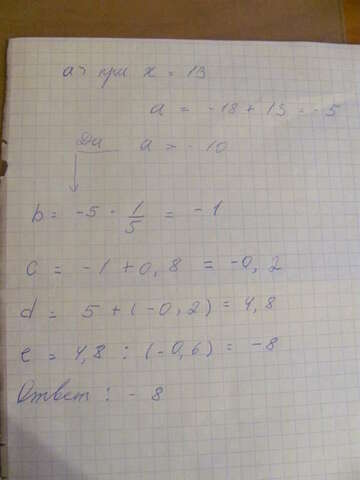 а) при x = 13
a = -18 + 13 = -5
Да a > -10
b = -5 · 1/5 = -1
c = -1 + 0,8 = -0,2
d = 5 + (-0,2) = 4,8
e = 4,8 : (-0,6) = -8
Ответ: -8